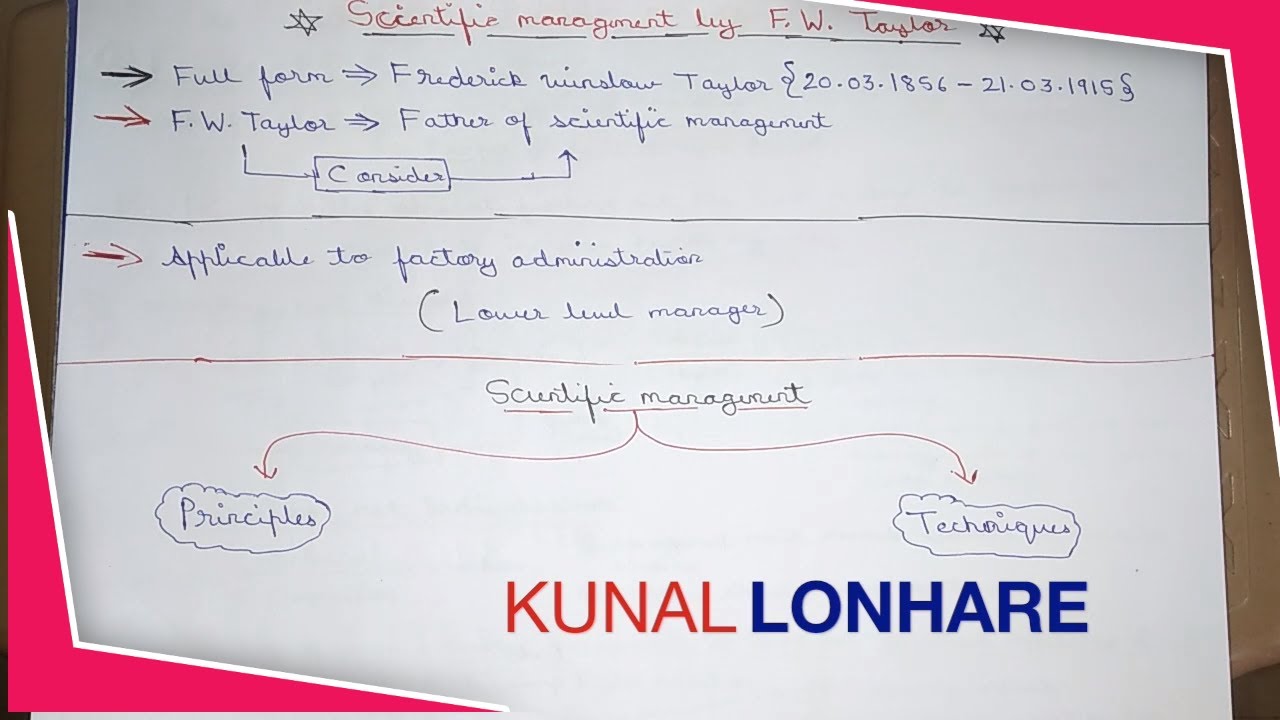 ☆ Scientific managment by F. W. Taylor ☆
→ Full form ⇒ Frederick winslow Taylor {20.03.1856 – 21.03.1915}
→ F.W. Taylor ⇒ Father of scientific management
Consider
→ Applicable to factory administration
(Lower level manager)
Scientific management
Principles
Techniques
KUNAL LONHARE